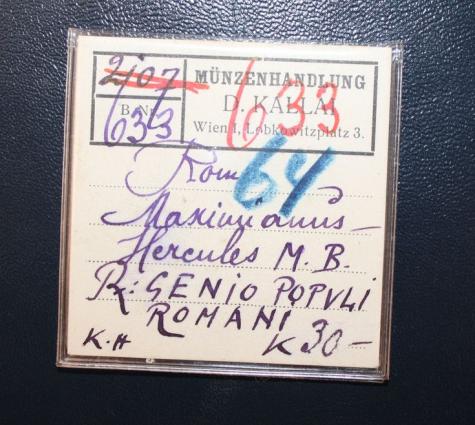 2107
MÜNZENHANDLUNG
D. KALLAI
Wien I, Lobkowitzplatz 3.
B. Nr.
633
633
64
Rom
Maximianus-
Hercules M. B.
R: GENIO POPVLI
ROMANI
K.H
K 30-